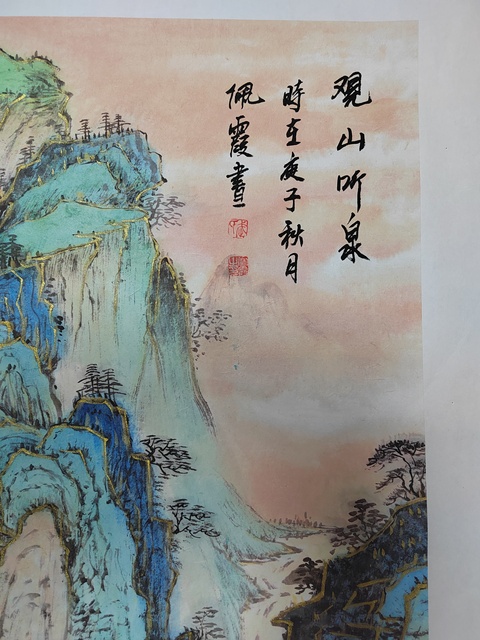 观山听泉
時在庚子秋月
佩霞畫